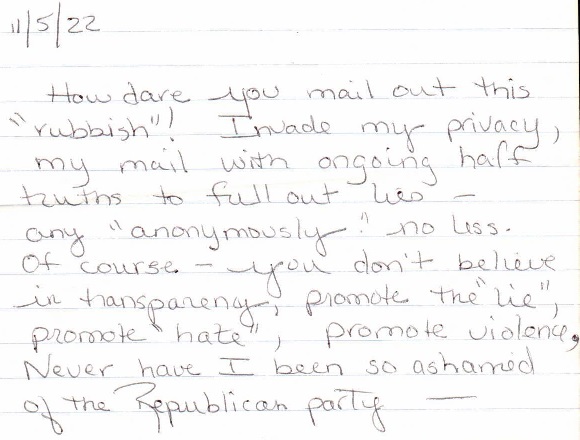 11/5/22
How dare you mail out this
"rubbish"! Invade my privacy,
my mail with ongoing half
truths to full out lies –
any "anonymously" no less.
Of course – you don't believe
in transparency, promote the "lie",
promote "hate", promote violence,
Never have I been so ashamed
of the Republican party —